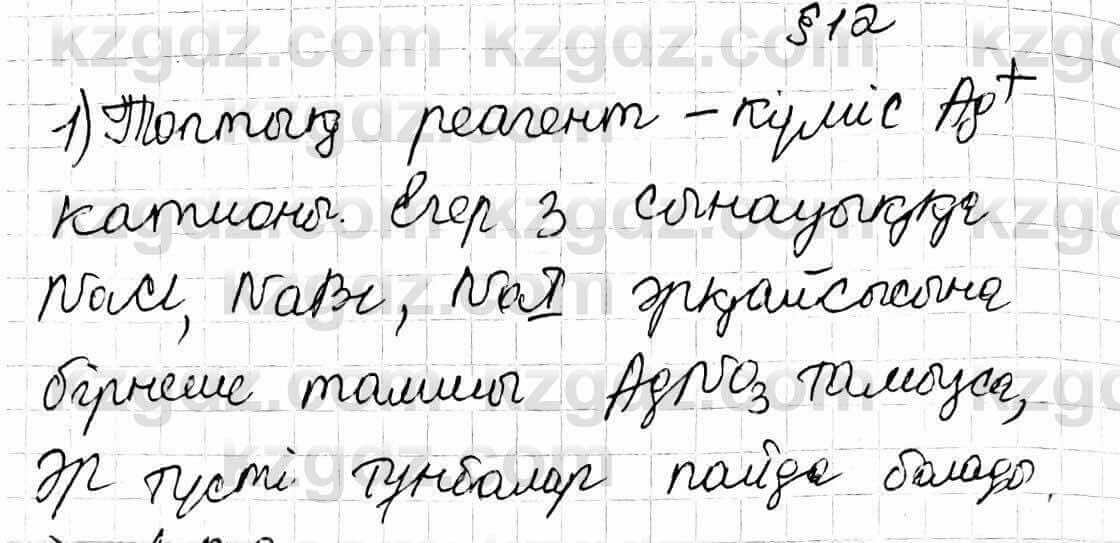 §12
1) Топтық реагент – күміс Ag⁺
катионы. Егер 3 сынауыққа
NaCl, NaBr, NaI әрқайсысына
бірнеше тамшы AgNO₃ тамызса,
әр түсті тұнбалар пайда болады.